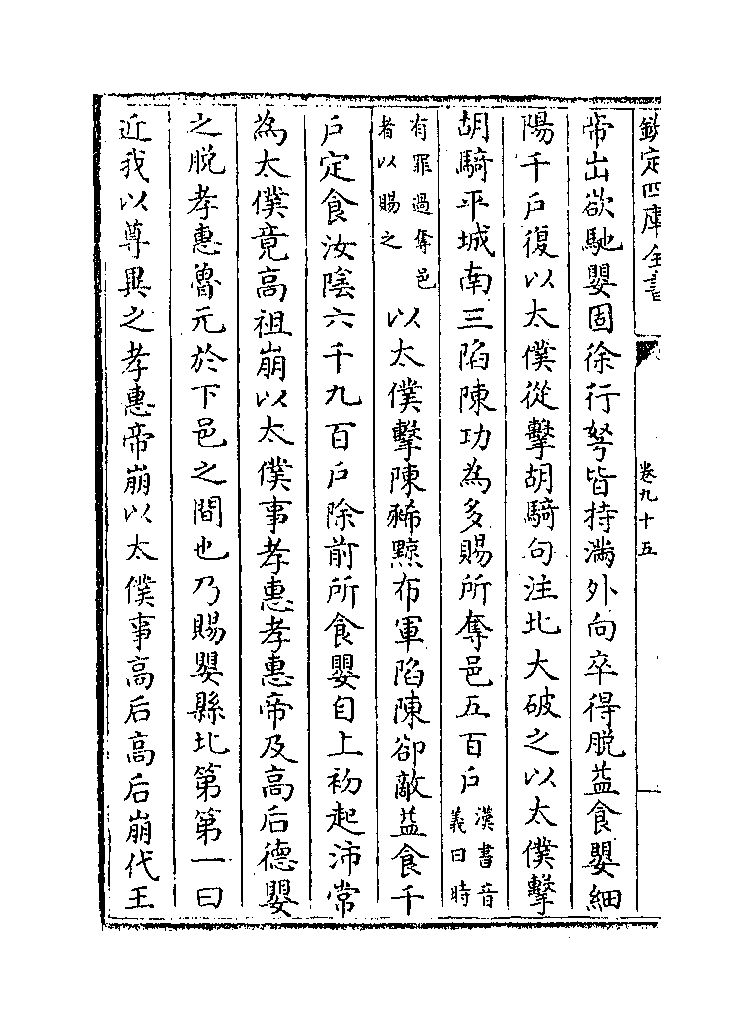 欽定四庫全書
卷九十五
帝出欲馳嬰固徐行弩皆持滿外向卒得脫益食嬰細
陽千戶復以太僕從擊胡騎句注北大破之以太僕擊
胡騎平城南三陷陳功為多賜所奪邑五百戶漢書音
義曰時
有罪過奪邑
者以賜之
以太僕擊陳豨黥布軍陷陳卻敵益食千
戶定食汝陰六千九百戶除前所食嬰自上初起沛常
為太僕竟高祖崩以太僕事孝惠孝惠帝及高后德嬰
之脫孝惠魯元於下邑之間也乃賜嬰縣北第第一曰
近我以尊異之孝惠帝崩以太僕事高后高后崩代王